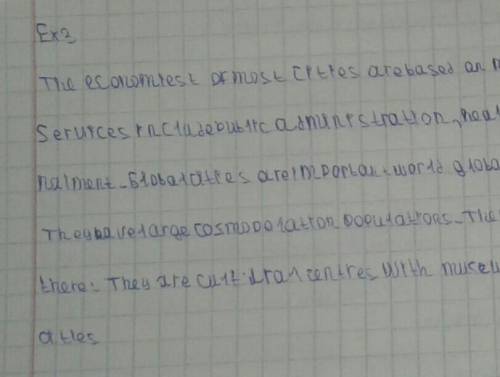 Ex2
The economiest of most cities are based on m
Services include public administration, hea
nalment. Global cities are important world globa
They have large cosmopolation populations. The
there: They are cultural centres with museu
cities